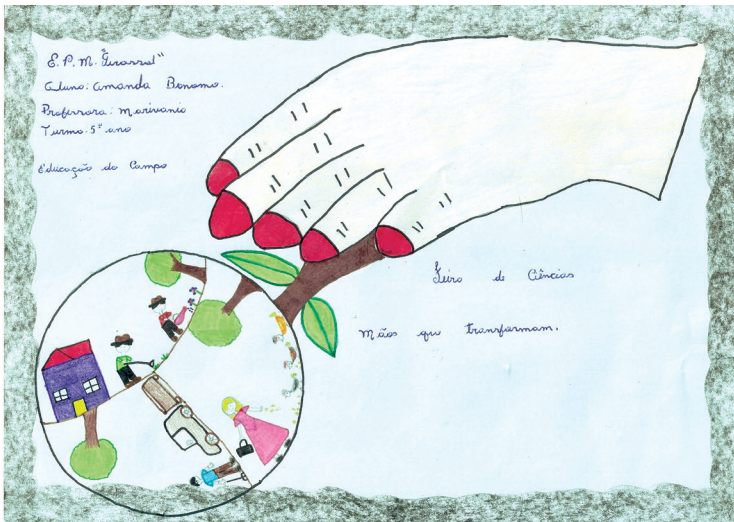 E. P. M. "Girassol"
Aluno: Amanda Bonomo.
Professora: Marivania
Turma: 5º ano
Educação do Campo
Feira de Ciências
Mãos que transformam.